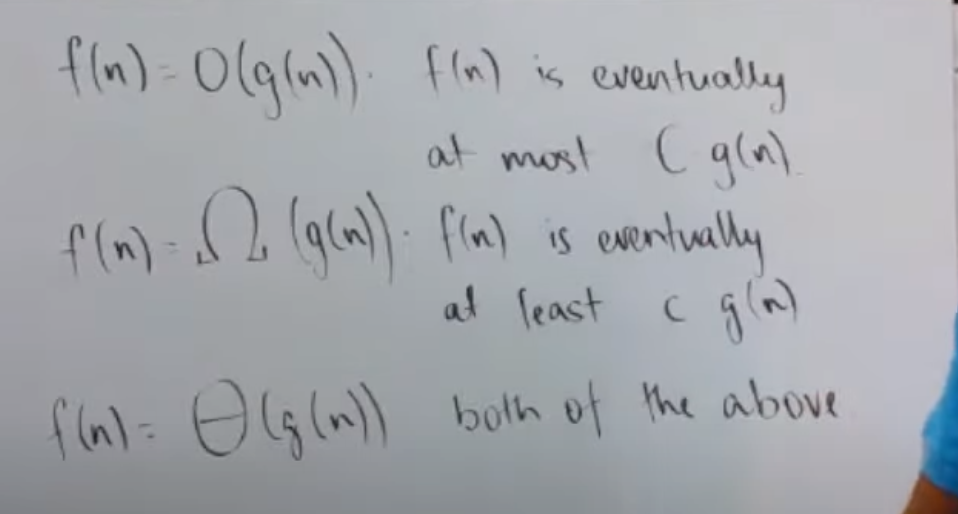 f(n) = O(g(n)). f(n) is eventually
at most C g(n).
f(n) = Ω (g(n)). f(n) is eventually
at least c g(n)
f(n) = Θ(g(n)) both of the above